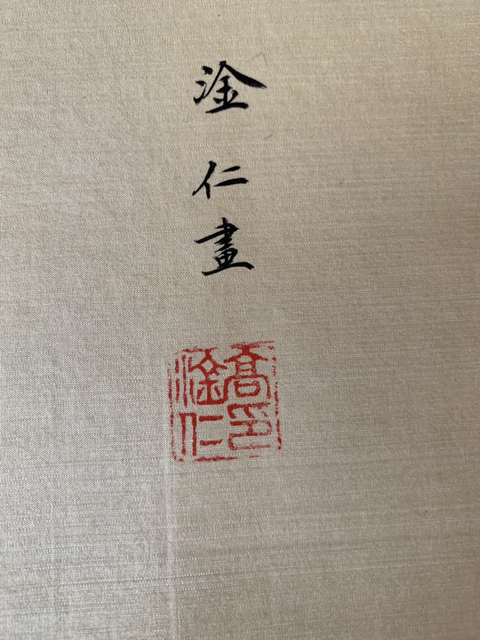 淦仁畫
高印
淦仁